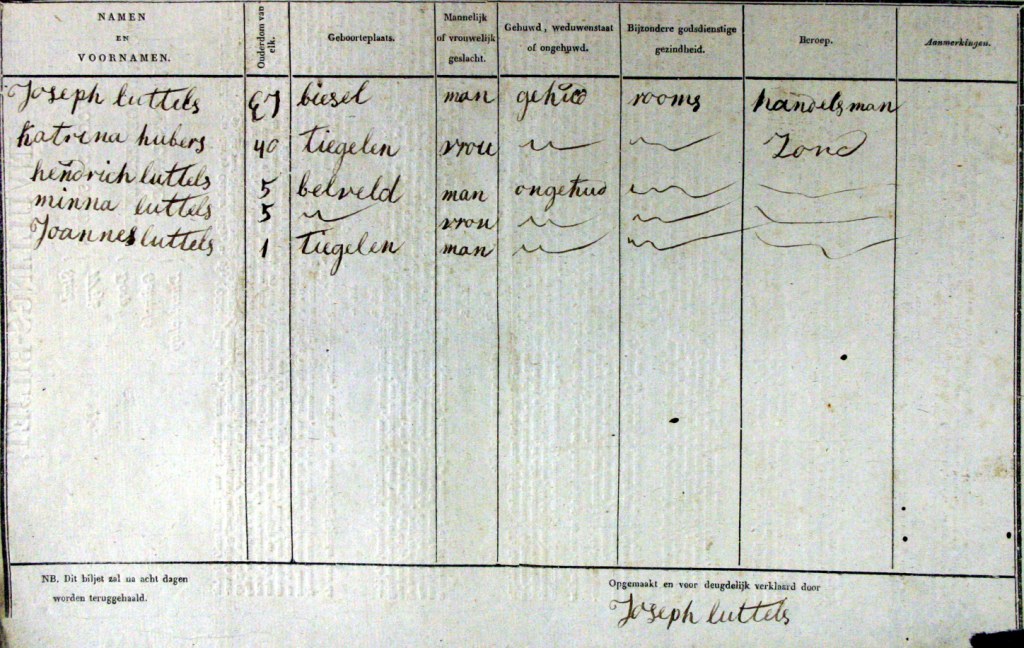 NAMEN EN VOORNAMEN. Ouderdom van elk. Geboorteplaats. Mannelijk of vrouwelijk geslacht. Gehuwd, weduwenstaat of ongehuwd. Bijzondere godsdienstige gezindheid. Beroep. Aanmerkingen.
Joseph luttels biesel man gehud rooms handelsman
Katrina hubers 40 tiegelen vrou
hendrich luttels 5 belveld man ongehud
minna luttels 5 vrou
Joannes luttels 1 tiegelen man
NB. Dit biljet zal na acht dagen
worden teruggehaald.
Opgemaakt en voor deugdelijk verklaard door
Joseph luttels